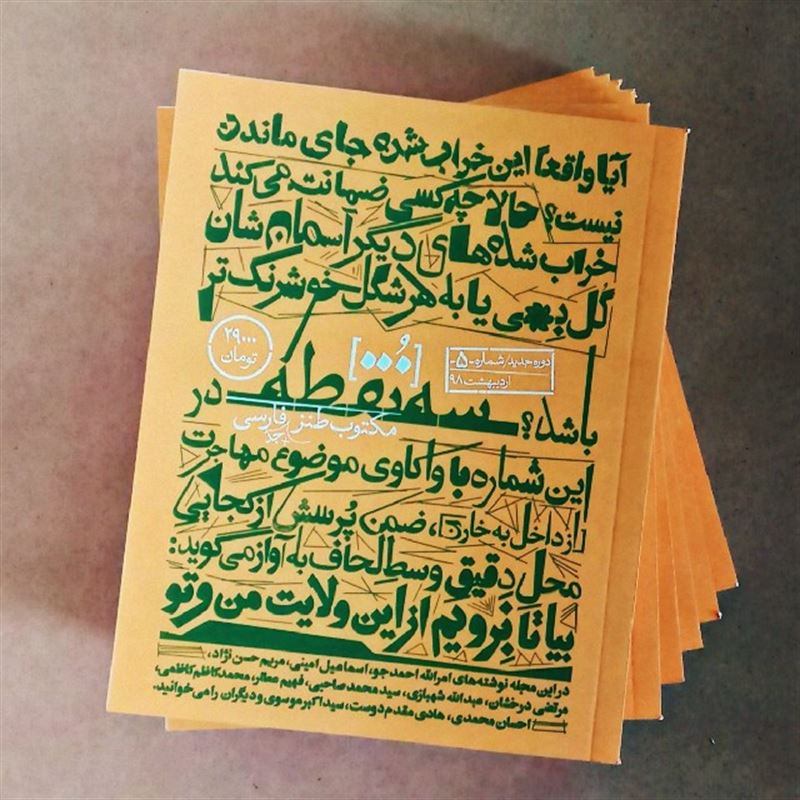 آیا واقعا این خراب شده جای ماندن
نیست؟ حالا چه کسی ضمانت می‌کند
خراب شده‌های دیگر آسمان شان
گل بهی یا به هر شکل خوشرنگ‌تر
باشد؟ سه نقطه در
دوره جدید/شماره -۵-
اردیبهشت ۹۸
[۰۰ُ۰]
۲۹۰۰۰
تومان
مکتوب طنز جدِ فارسی
این شماره با واکاوی موضوع مهاجرت
[از داخل به خارج]، ضمن پُرسش از کجاییِ
محل دِقیقِ وسطِ لحاف به آواز می‌گوید:
بیا تا بِرویم از این ولایت من و تو
در این مجله نوشته‌های امرالله احمدجو، اسماعیل امینی، مریم حسن نژاد،
مرتضی درخشان، عبدالله شهبازی، سید محمد صاحبی، فهیم عطار، محمدکاظم کاظمی،
احسان محمدی، هادی مقدم دوست، سیداکبر موسوی و دیگران را می‌خوانید.